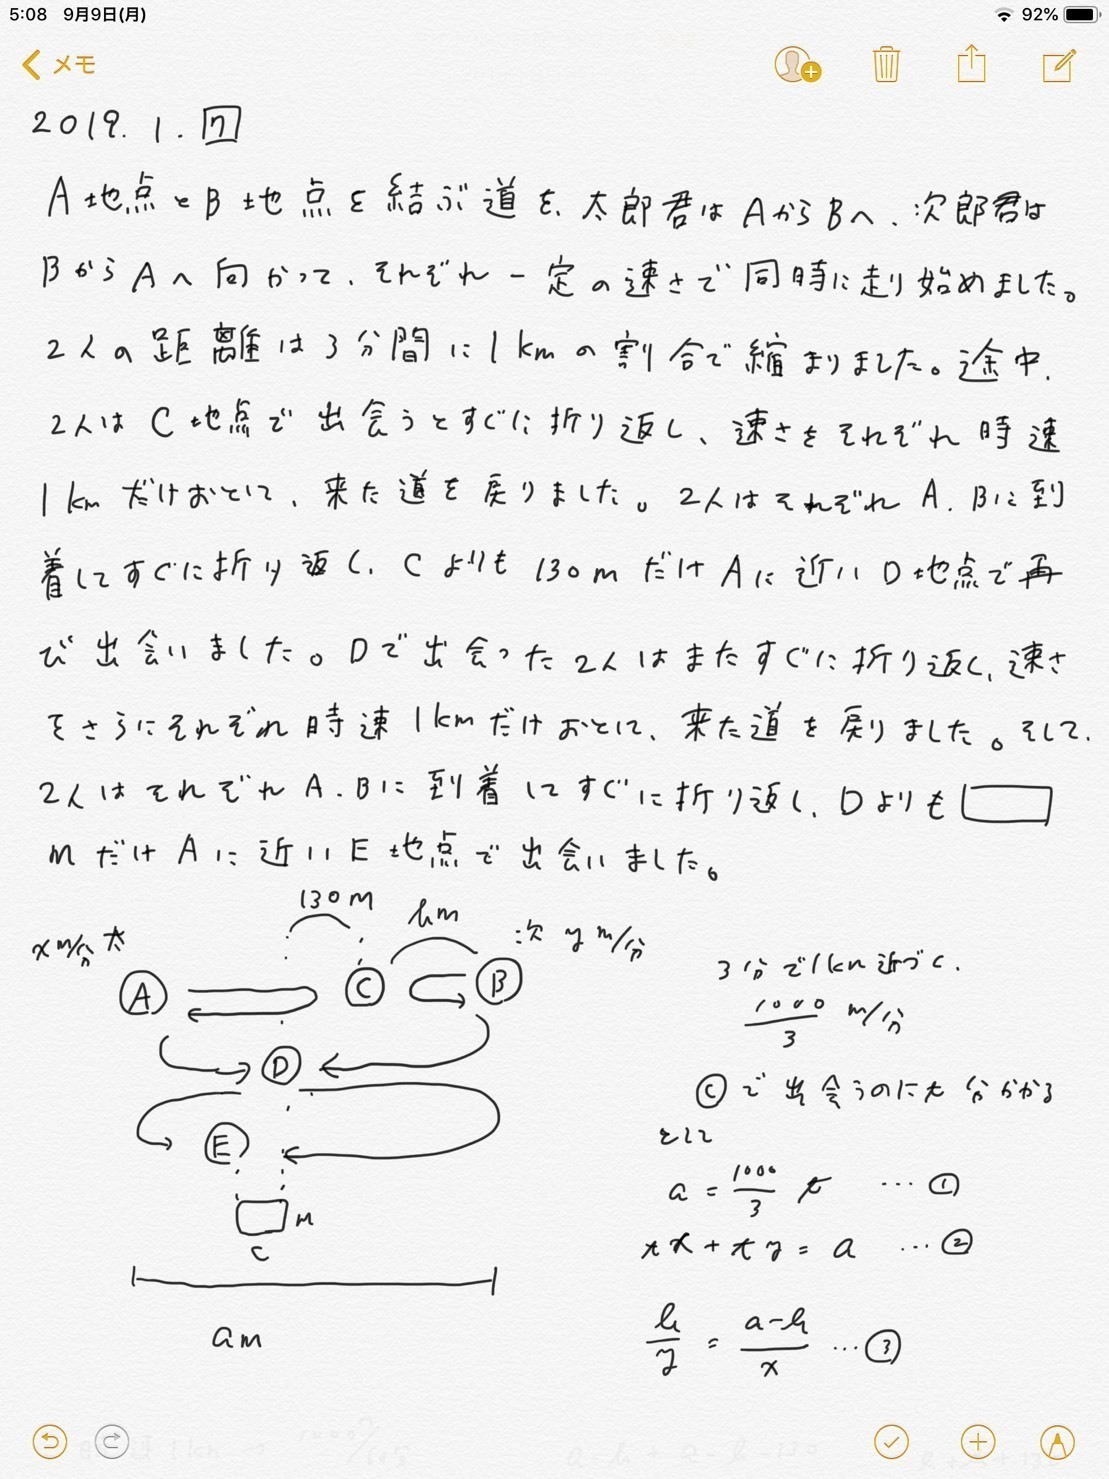 5:08 9月9日(月)
92%
メモ
2019. 1. 7
A地点とB地点を結ぶ道を、太郎君はAからBへ、次郎君は
BからAへ向かって、それぞれ一定の速さで同時に走り始めました。
2人の距離は3分間に1kmの割合で縮まりました。途中、
2人はC地点で出会うとすぐに折り返し、速さをそれぞれ時速
1kmだけおとして、来た道を戻りました。2人はそれぞれA、Bに到
着してすぐに折り返し、Cよりも130mだけAに近いD地点で再
び出会いました。Dで出会った2人はまたすぐに折り返し、速さ
をさらにそれぞれ時速1kmだけおとして、来た道を戻りました。そして、
2人はそれぞれA、Bに到着してすぐに折り返し、Dよりも
mだけAに近いE地点で出会いました。
130m
bm
xm/分 太
次 ym/分
A
C
B
D
E
m
c
am
3分で1km近づく.
1000/3 m/分
Cで出会うのにt分かかる
として
a = 1000/3 t … ①
tx + ty = a … ②
b/y = a-b/x … ③